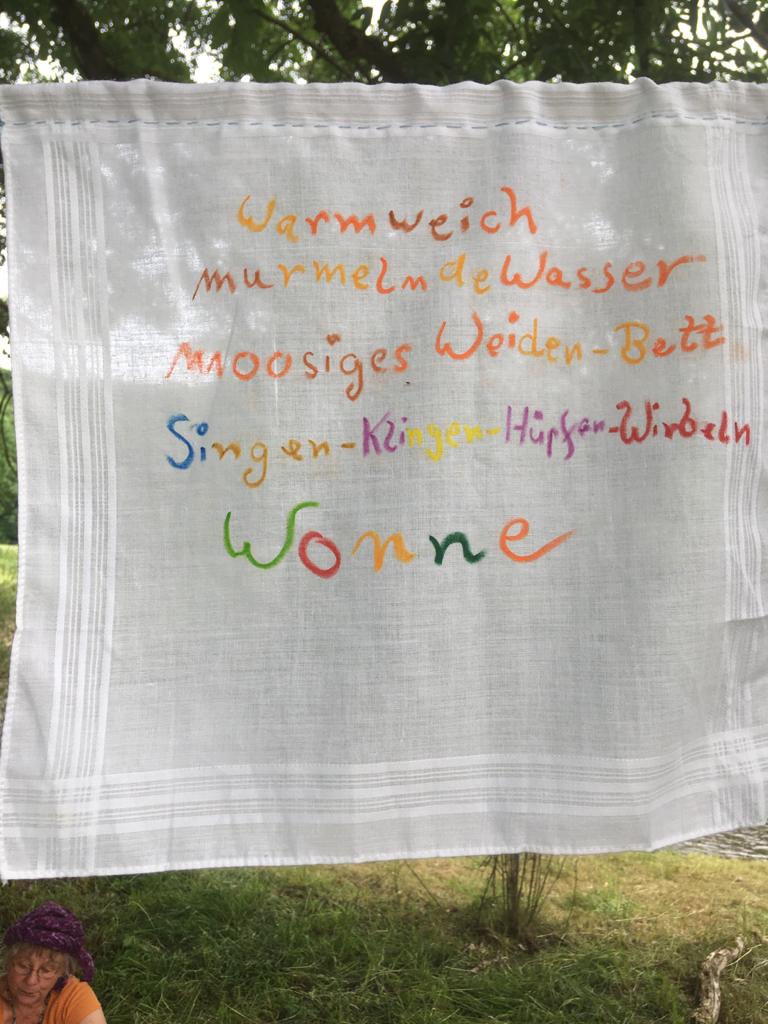 Warmweich
murmelndeWasser
moosiges Weiden-Bett
Singen-Klingen-Hüpfen-Wirbeln
Wonne